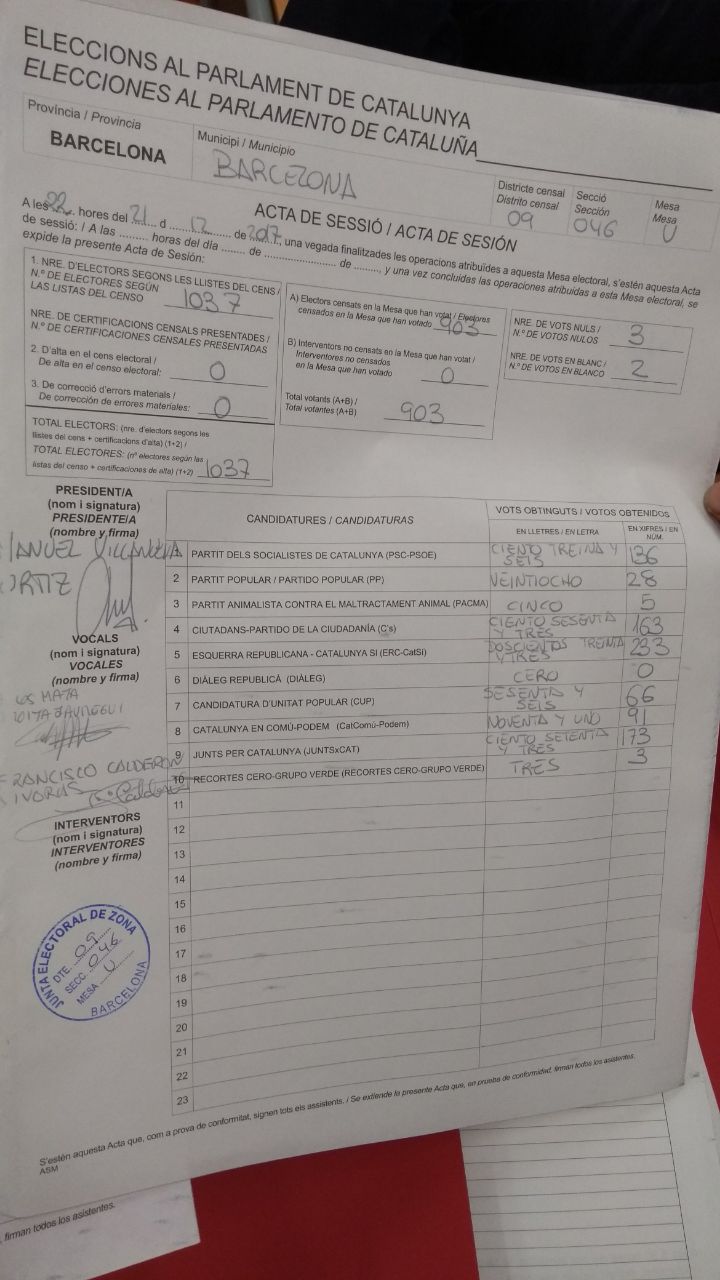 ELECCIONS AL PARLAMENT DE CATALUNYA
ELECCIONES AL PARLAMENTO DE CATALUÑA
Província / Provincia
BARCELONA
Municipi / Municipio
BARCELONA
Districte censal
Distrito censal
09
Secció
Sección
046
Mesa
Mesa
U
ACTA DE SESSIÓ / ACTA DE SESIÓN
A les 22 hores del 21 d 12 de 2017, una vegada finalitzades les operacions atribuïdes a aquesta Mesa electoral, s'estén aquesta Acta
de sessió: / A las ......... horas del día ....... de ..................... de ........, y una vez concluidas las operaciones atribuidas a esta Mesa electoral, se
expide la presente Acta de Sesión:
1. NRE. D'ELECTORS SEGONS LES LLISTES DEL CENS /
N.º DE ELECTORES SEGÚN
LAS LISTAS DEL CENSO 1037
NRE. DE CERTIFICACIONS CENSALS PRESENTADES /
N.º DE CERTIFICACIONES CENSALES PRESENTADAS
2. D'alta en el cens electoral /
De alta en el censo electoral: 0
3. De correcció d'errors materials /
De corrección de errores materiales: 0
TOTAL ELECTORS: (nre. d'electors segons les
llistes del cens + certificacions d'alta) (1+2) /
TOTAL ELECTORES: (nº electores según las
listas del censo + certificaciones de alta) (1+2) 1037
A) Electors censats en la Mesa que han votat / Electores
censados en la Mesa que han votado 903
B) Interventors no censats en la Mesa que han votat /
Interventores no censados
en la Mesa que han votado 0
Total votants (A+B) /
Total votantes (A+B) 903
NRE. DE VOTS NULS /
N.º DE VOTOS NULOS 3
NRE. DE VOTS EN BLANC /
N.º DE VOTOS EN BLANCO 2
PRESIDENT/A
(nom i signatura)
PRESIDENTE/A
(nombre y firma)
MANUEL VILLANUEVA
ORTIZ
VOCALS
(nom i signatura)
VOCALES
(nombre y firma)
MATA
FRANCISCO CALDERON
INTERVENTORS
(nom i signatura)
INTERVENTORES
(nombre y firma)
CANDIDATURES / CANDIDATURAS
VOTS OBTINGUTS / VOTOS OBTENIDOS
EN LLETRES / EN LETRA
EN XIFRES / EN NÚM.
1 PARTIT DELS SOCIALISTES DE CATALUNYA (PSC-PSOE) CIENTO TREINA Y SEIS 136
2 PARTIT POPULAR / PARTIDO POPULAR (PP) VEINTIOCHO 28
3 PARTIT ANIMALISTA CONTRA EL MALTRACTAMENT ANIMAL (PACMA) CINCO 5
4 CIUTADANS-PARTIDO DE LA CIUDADANÍA (C's) CIENTO SESENTA Y TRES 163
5 ESQUERRA REPUBLICANA - CATALUNYA SI (ERC-CatSí) DOSCIENTOS TREINTA Y TRES 233
6 DIÀLEG REPUBLICÀ (DIÀLEG) CERO 0
7 CANDIDATURA D'UNITAT POPULAR (CUP) SESENTA Y SEIS 66
8 CATALUNYA EN COMÚ-PODEM (CatComú-Podem) NOVENTA Y UNO 91
9 JUNTS PER CATALUNYA (JUNTSxCAT) CIENTO SETENTA Y TRES 173
10 RECORTES CERO-GRUPO VERDE (RECORTES CERO-GRUPO VERDE) TRES 3
11
12
13
14
15
16
17
18
19
20
21
22
23
JUNTA ELECTORAL DE ZONA
DTE. 09
SECC. 046
MESA U
BARCELONA
S'estén aquesta Acta que, com a prova de conformitat, signen tots els assistents. / Se extiende la presente Acta que, en prueba de conformidad, firman todos los asistentes.
ASM
firman todos los asistentes.